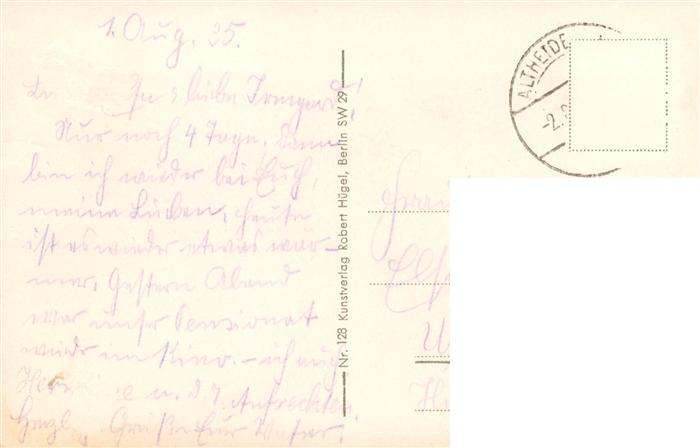 1. Aug. 35.
liebe Irmgard!
Nur noch 4 Tage, dann
bin ich wieder bei Euch,
meine Lieben, heute
ist es wieder etwas wär-
mer. Gestern Abend
war unser Pensionat
wieder im Kino – ich auch
u. d. 7 Aufrechten
Herzl. Grüße Euer Vater.
Nr. 128 Kunstverlag Robert Hügel, Berlin SW 29
ALTHEIDE
-2.